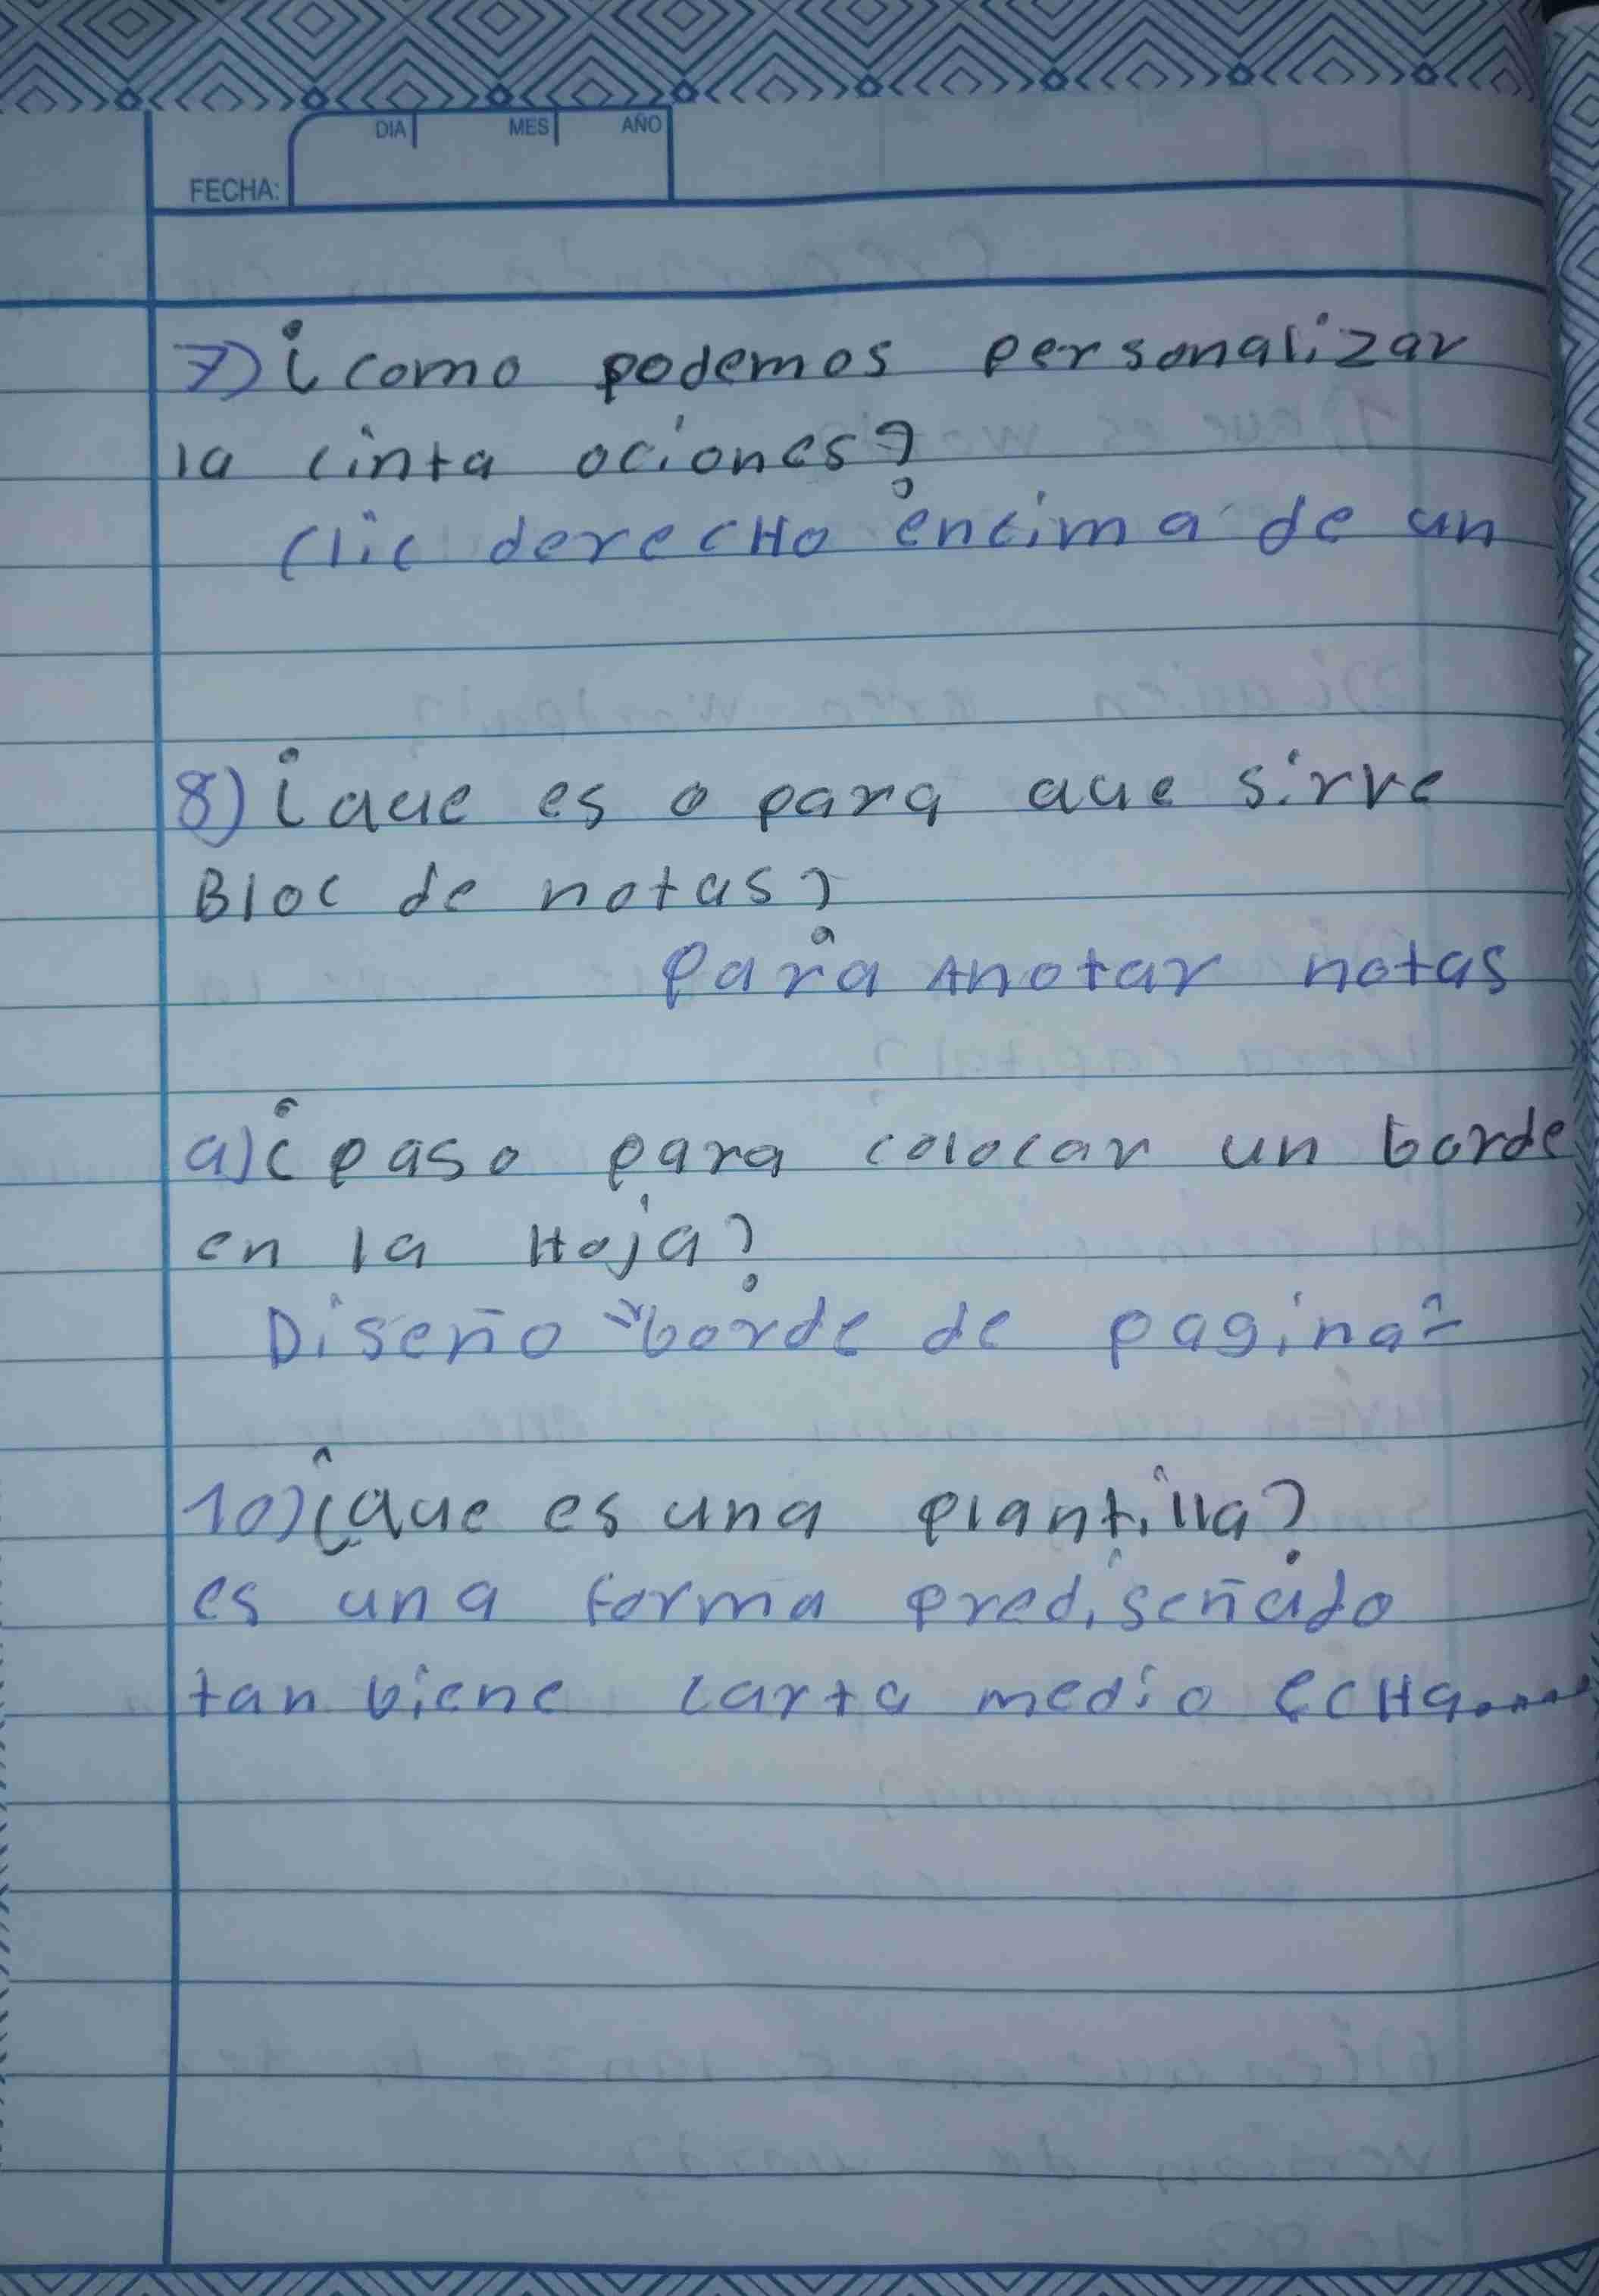 DIA MES AÑO
FECHA:
7) ¿como podemos personalizar
la cinta ociones?
clic derecHo encima de un
8) ¿que es o para que sirve
Bloc de notas?
para Anotar notas
9) ¿paso para colocar un borde
en la Hoja?
Diseño "borde de pagina"
10) ¿Que es una plantilla?
es una forma prediseñado
tan biene carta medio ecHa....